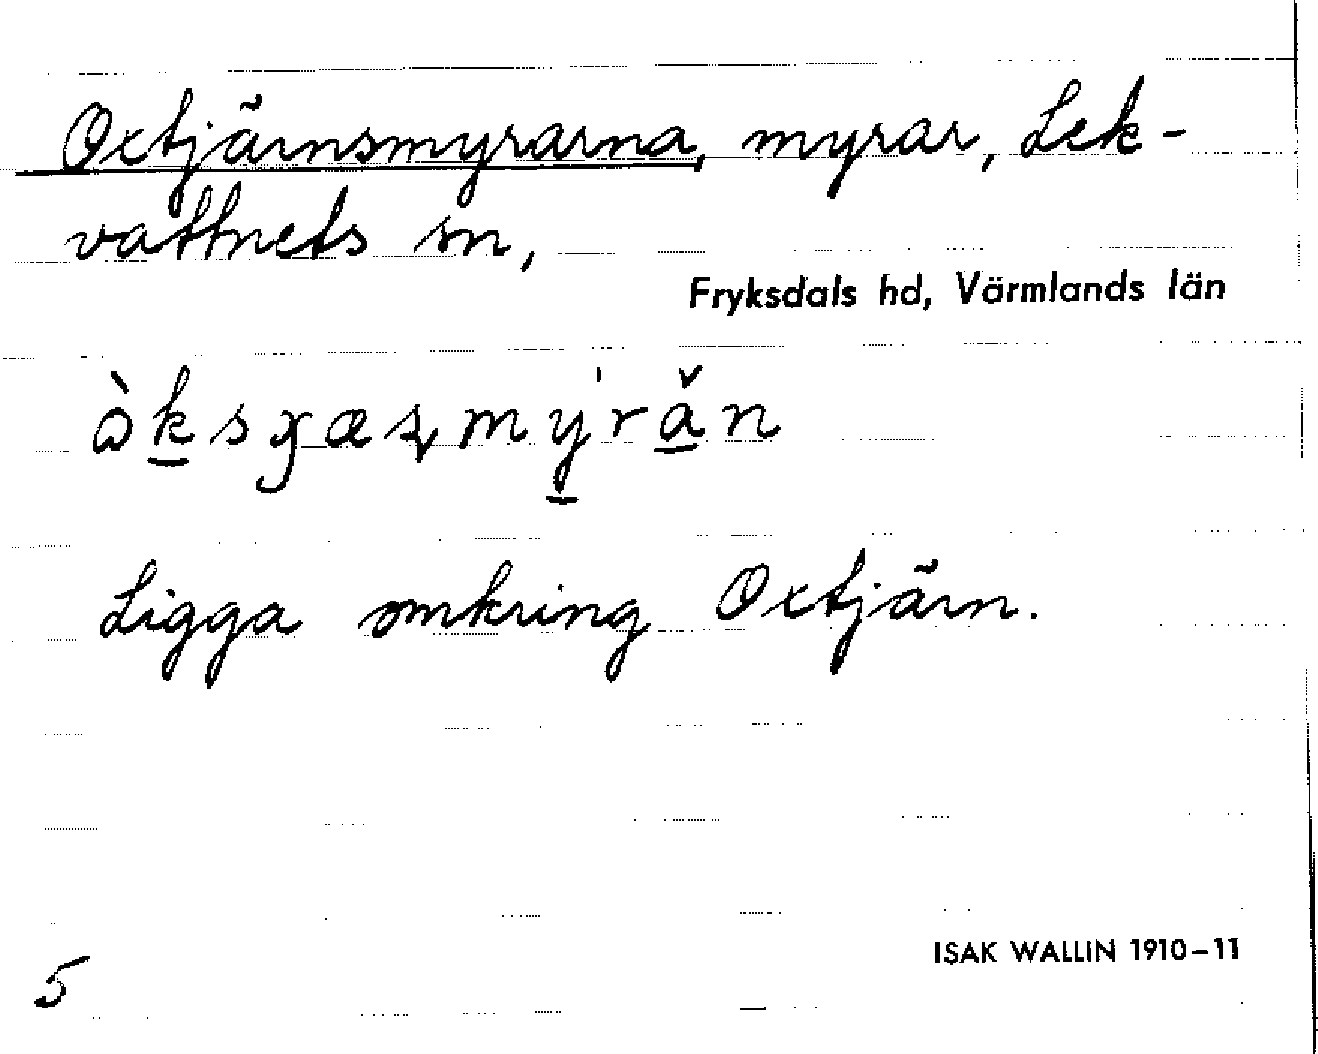 Oxtjärnsmyrarna, myrar, Lek-
vattnets sn,
Fryksdals hd, Värmlands län
Ligga omkring Oxtjärn.
ISAK WALLIN 1910-11
5